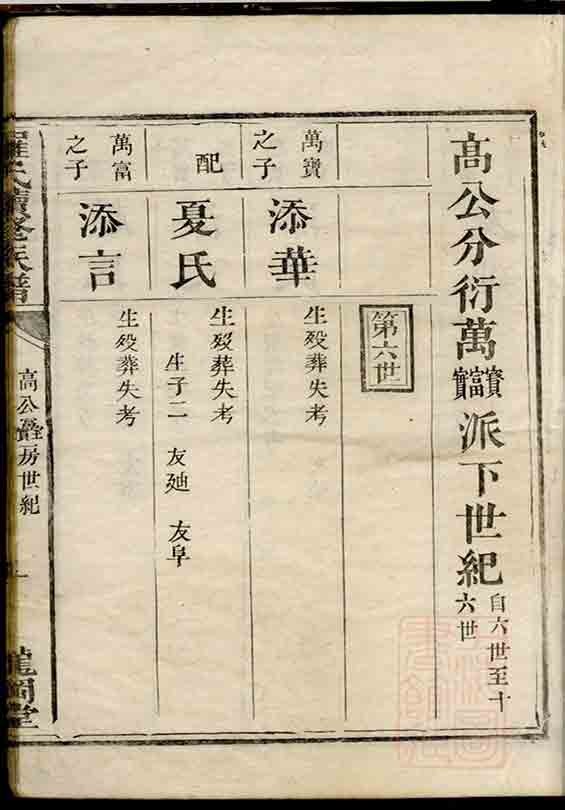 高公分衍萬寶富實派下世紀自六世至十六世
第六世
萬寶之子
添華
生歿葬失考
配
夏氏
生歿葬失考
生子二 友廸 友阜
萬富之子
添言
生歿葬失考
羅氏續修族譜
高公
房世紀